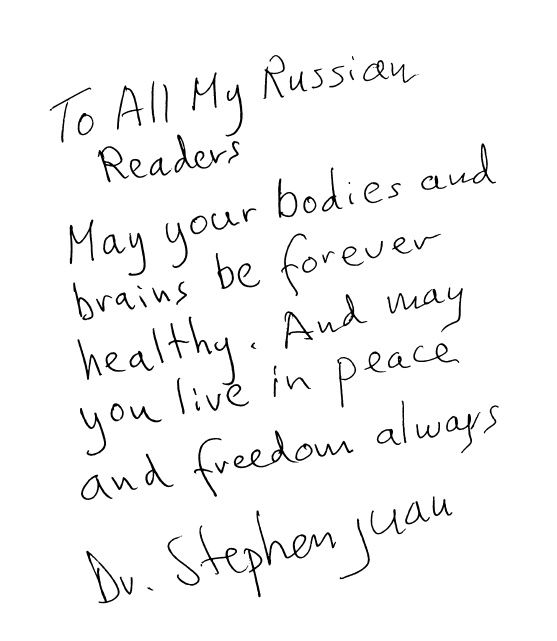 To All My Russian
Readers
May your bodies and
brains be forever
healthy. And may
you live in peace
and freedom always
Dr. Stephen Juan